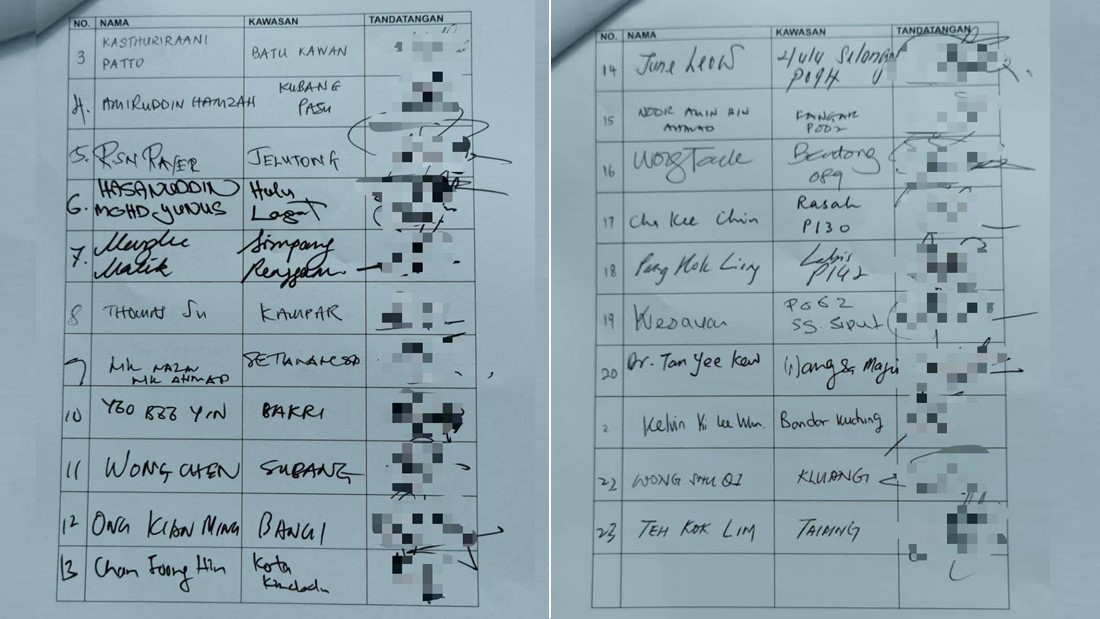 NO. NAMA KAWASAN TANDATANGAN
3 KASTHURIRAANI PATTO BATU KAWAN
4. AMIRUDDIN HAMZAH KUBANG PASU
5. RSN RAYER JELUTONG
6. HASANUDDIN MOHD YUNUS Hulu Langat
7. Manolee Malik Simpang Renggam
8 THOMAS SU KAMPAR
9 NIK NAZMI NIK AHMAD SETIAWANGSA
10 YEO BEE YIN BAKRI
11 WONG CHEN SUBANG
12 ONG KIAN MING BANGI
13 Chan Foong Hin Kota Kinabalu
NO. NAMA KAWASAN TANDATANGAN
14 June Leow Hulu Selangor P094
15 NOOR AMIN BIN AHMAD KANGAR P002
16 Wong Tack Bentong 089
17 Cha Kee Chin Rasah P130
18 Pang Hok Liong Labis P142
19 Kesavan P062 SG. Siput
20 Dr. Tan Yee Kew Wangsa Maju
2 Kelvin Yi Lee Wuen Bandar Kuching
22 WONG SHU QI KLUANG
23 TEH KOK LIM TAIPING